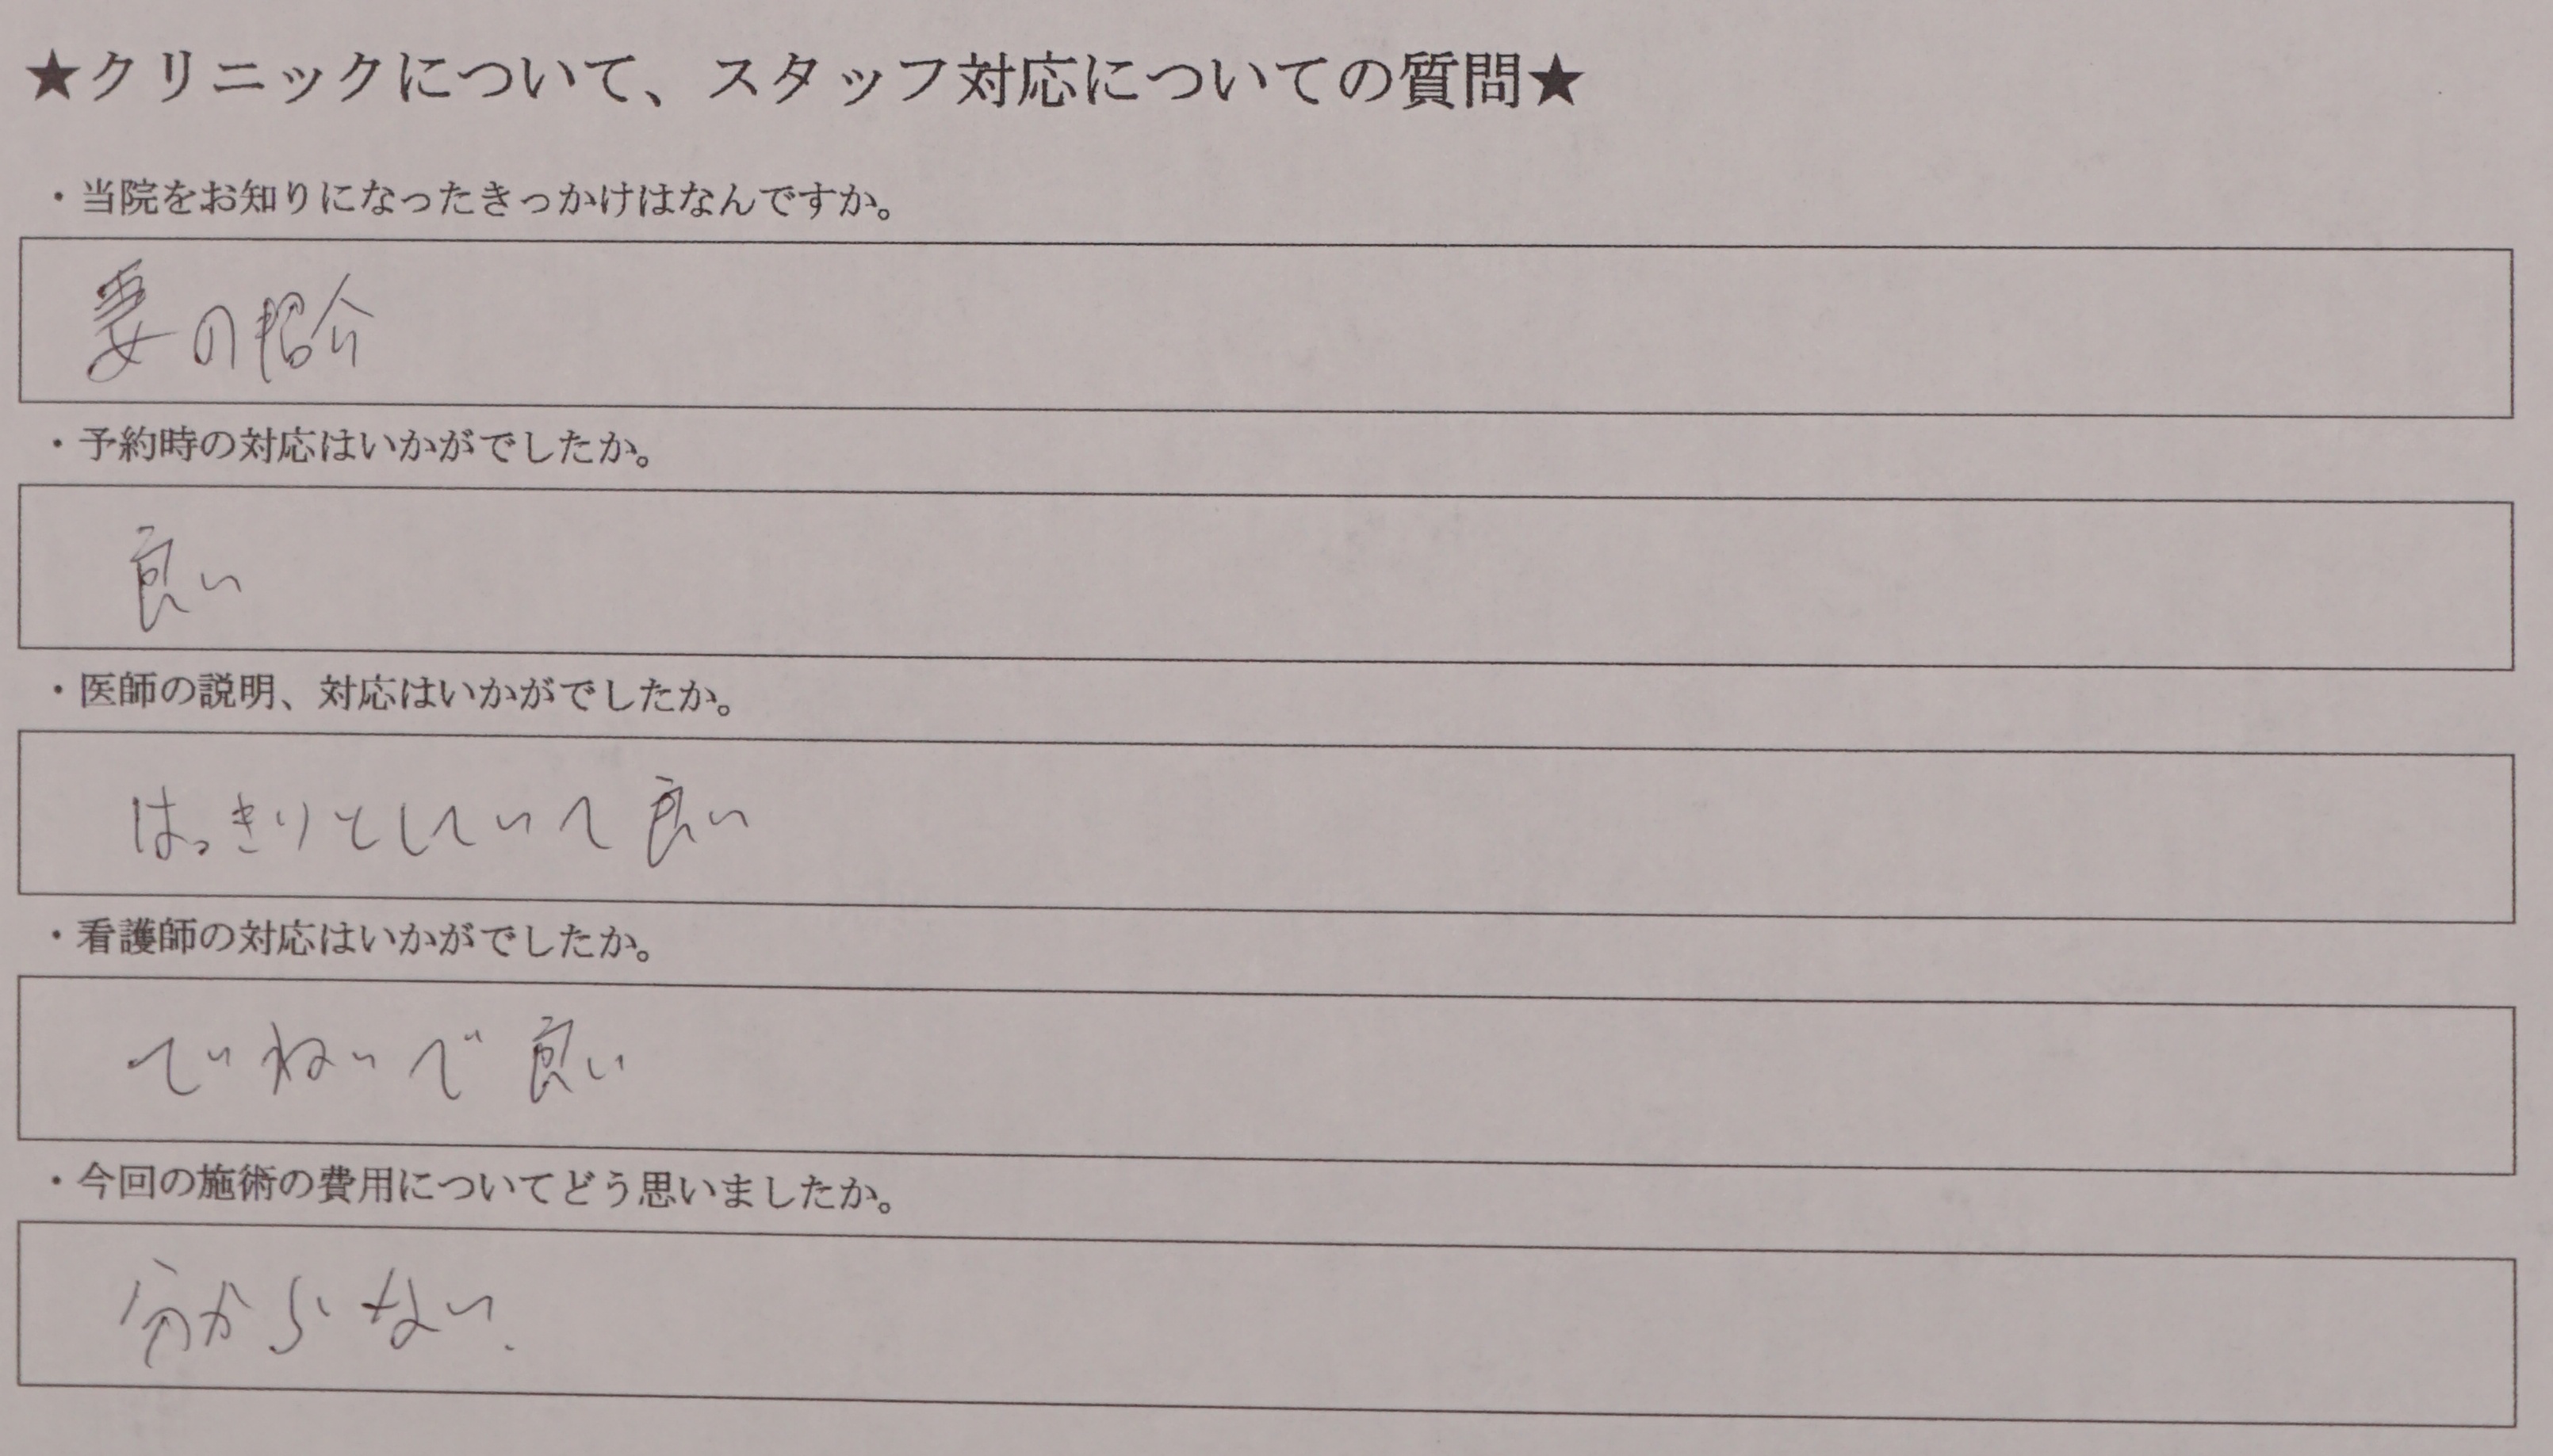 ★クリニックについて、スタッフ対応についての質問★
・当院をお知りになったきっかけはなんですか。
妻の紹介
・予約時の対応はいかがでしたか。
良い
・医師の説明、対応はいかがでしたか。
はっきりとしていて良い
・看護師の対応はいかがでしたか。
ていねいで良い
・今回の施術の費用についてどう思いましたか。
分からない.